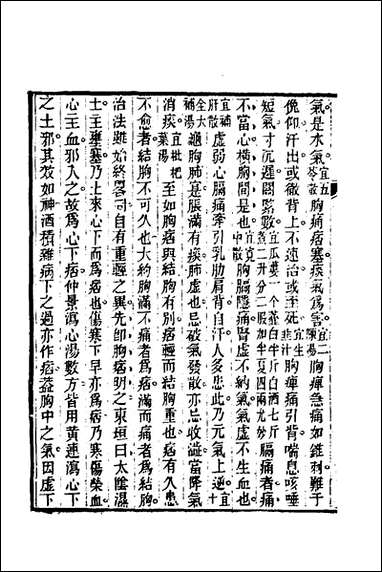 氣是水氣宜五苓散胸痛痞塞痰氣為害宜二陳湯胸痺急痛如錐刺難于
俛仰汗出或微背上不速治或至死宜生韭汁胸痺痛引背喘息咳唾
短氣寸沉遲關緊數宜瓜蔞一个薤白半斤白酒七斤煮二升分二服加半夏四兩尤妙膈痛者痛
不當心橫胸間是也宜中散胸膈隱痛腎虛不納氣氣虛不生血也
宜補肝散虛弱心膈痛牽引乳肋肩背自汗人多患此乃元氣上逆宜十
全大補湯胸肺是脹滿有痰肺虛也忌破氣發散亦忌收澁當降氣
消痰宜枇杷葉湯至如胸痞與結胸有別痞輕而結胸重也痞有久患
不愈者結胸不可久也大約胸滿不痛者為痞滿而痛者為結胸
治法雖始終畧同自有重輕之異先卽胸痞明之東垣曰太陰濕
土主壅塞乃土來心下而為痞也傷寒下早亦為痞乃寒傷榮血
心主血邪入之故為心下痞仲景瀉心湯數方皆用黃連瀉心下
之土邪其效如神酒積雜病下之過亦作痞葢胸中之氣因虛下